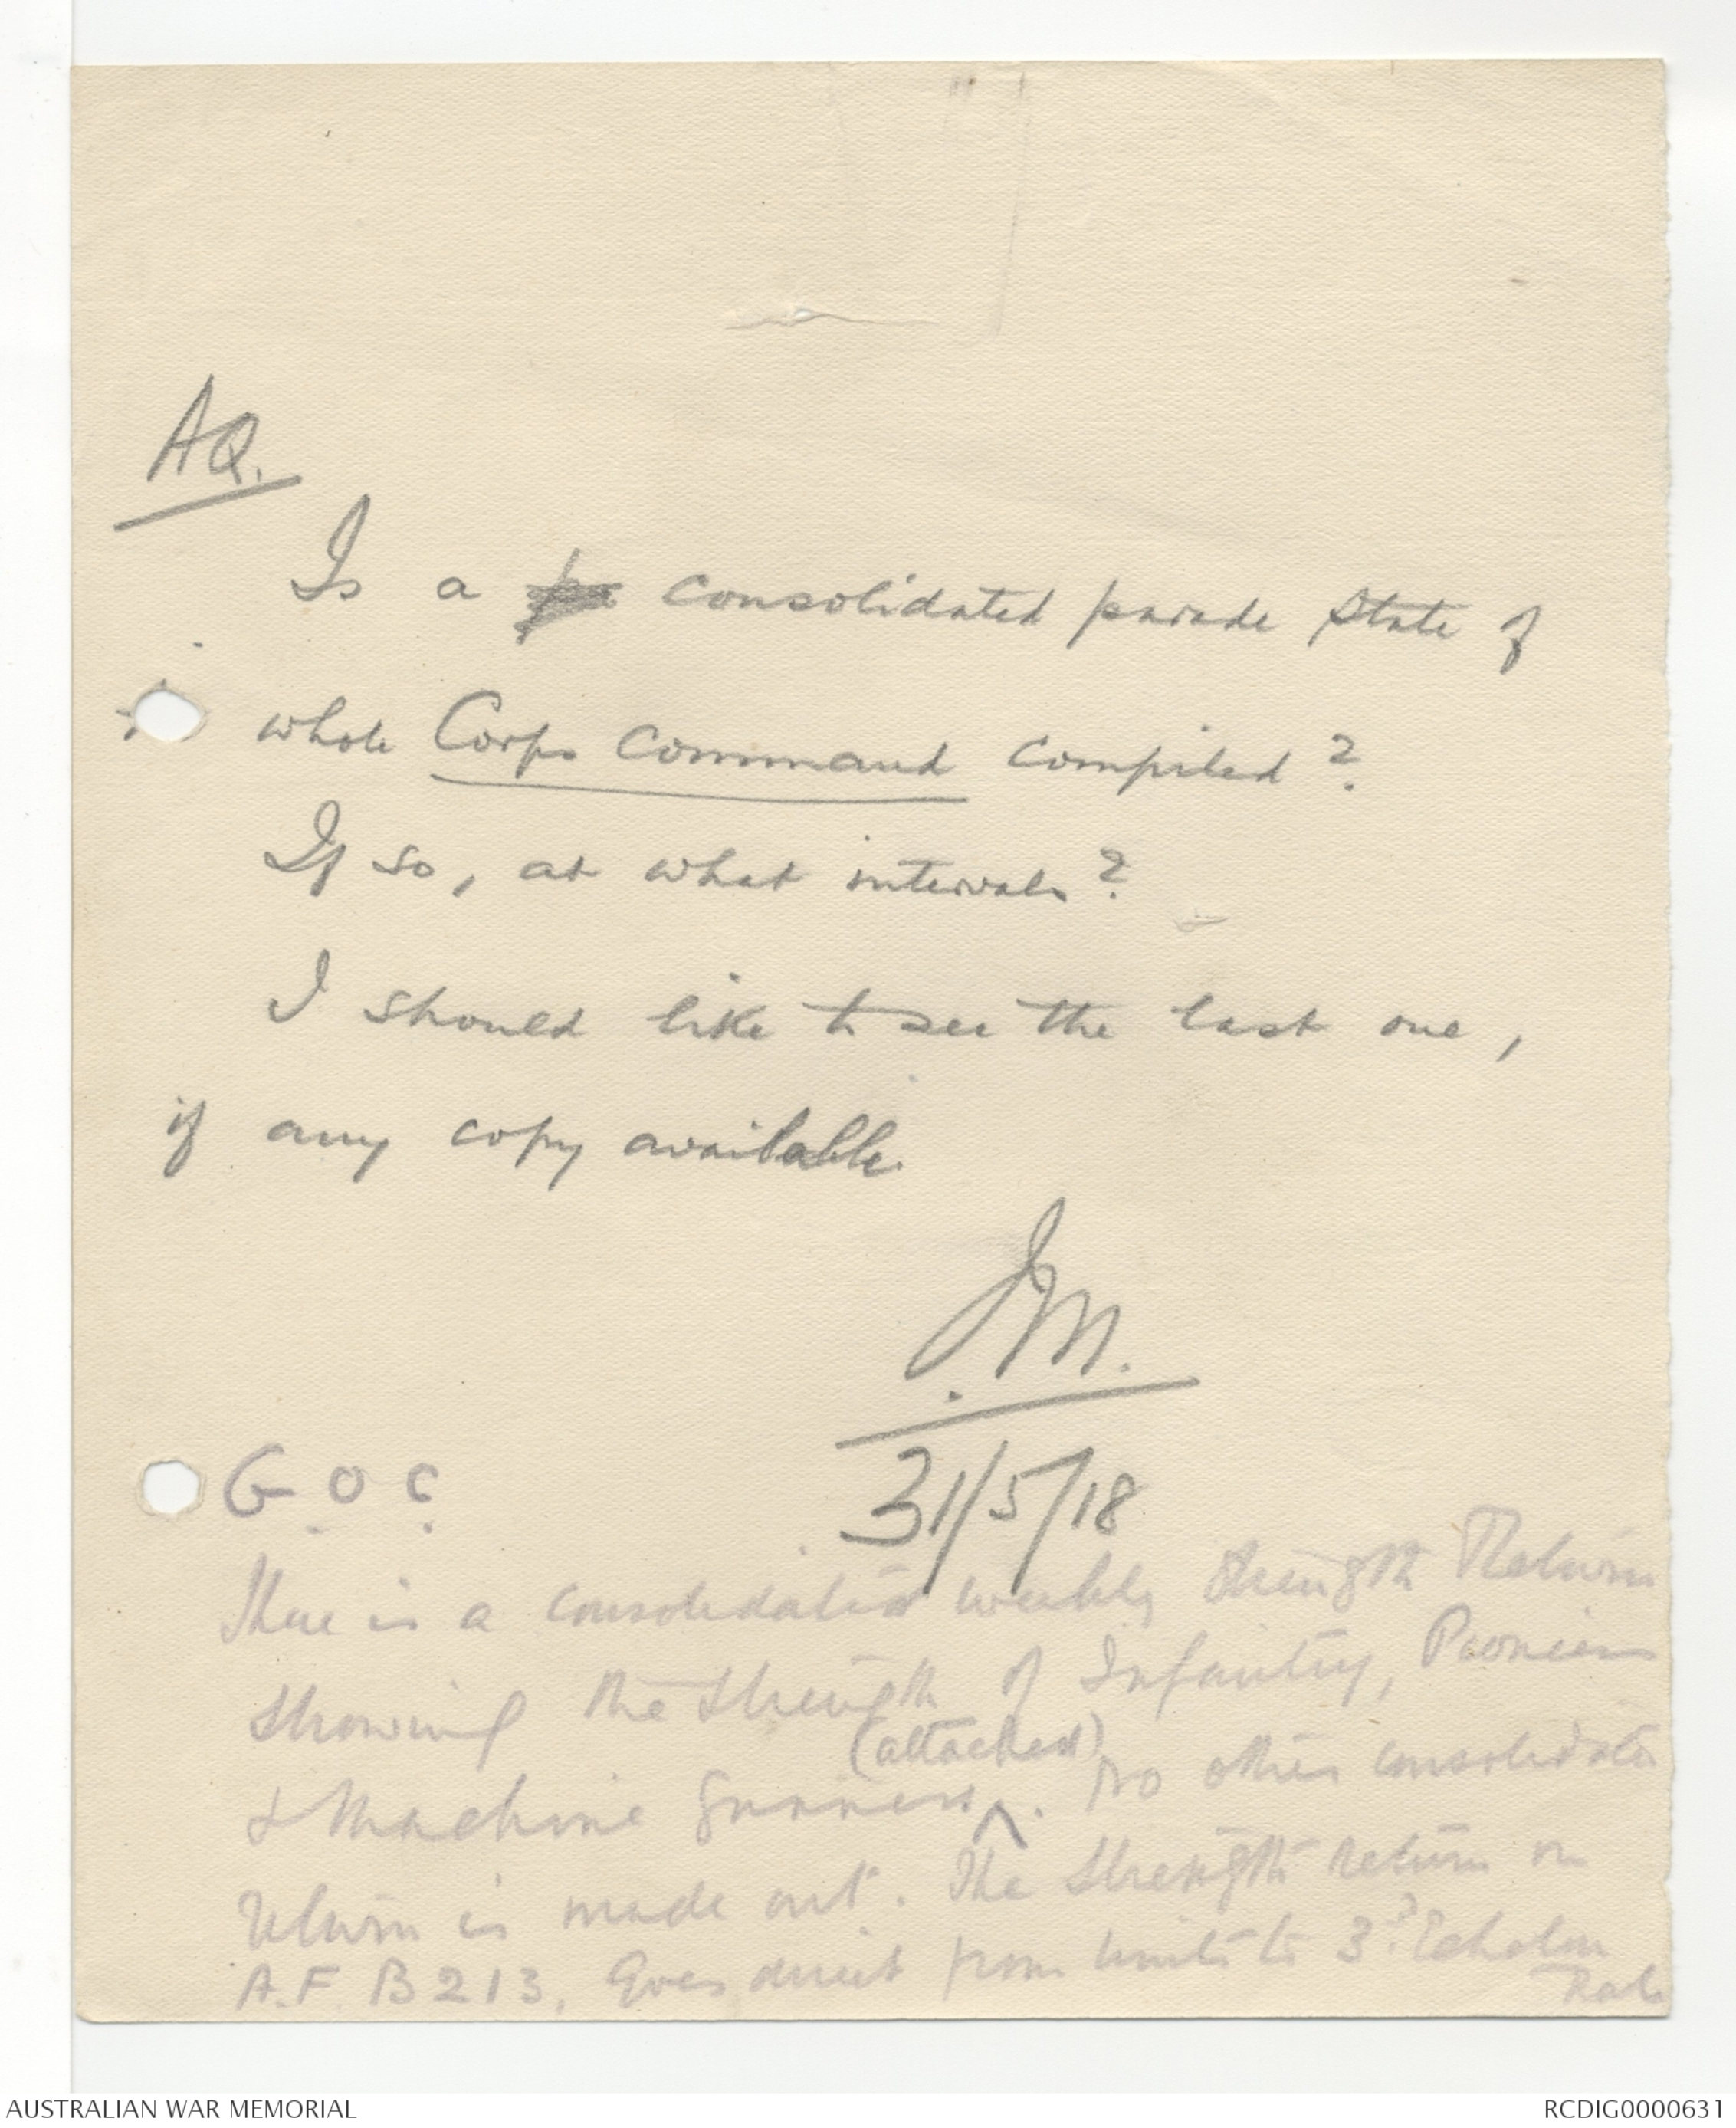 AQ.
Is a consolidated parade state of
whole Corps Command compiled?
If so, at what intervals?
I should like to see the last one,
if any copy available.
J.M.
31/5/18
G.O.C.
There is a consolidated weekly strength Return
showing the strength of Infantry, Pioneers
(attached)
& Machine Gunners ^. No other consolidated
return is made out. The strength return on
A.F. B213. Goes direct from Units to 3rd Echelon
AUSTRALIAN WAR MEMORIAL
RCDIG0000631